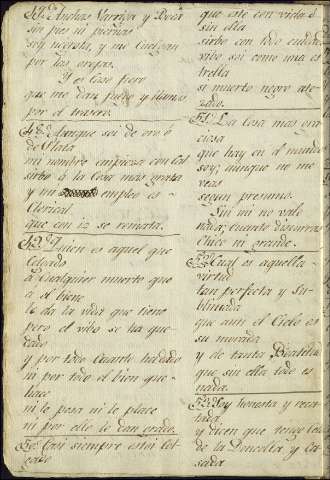 47ª Anchas Narizes y Boca
sin pies ni piernas
soy negrota, y me cuelgan
por las orejas.
Y es caso fiero
que me dan fuego y llamas
por el trasero.
48ª Aunque soi de oro ó
de Plata
mi nombre empieza con Cal
sirbo à la Cosa mas grata
y mi empleo es
Clerical
que con iz se remata.
49ª Quien es aquel que
Colgado
à qualquier muerto que
a el biene
le da la vida que tiene
pero el vibo se ha que
dado
y por todo quanto ha dado
ni por todo el bien que
hace
ni le pesa ni le place
ni por ello le dan grado.
50ª Casi siempre estoi Col
gado
que este con vida ó
sin ella
sirbo con todo cuidado
vibo asi como una es
trella
si muerto negro ate
zado.
51ª La cosa mas gra
ciosa
que hay en el mundo
soy; aunque no me
veas
segun presumo.
Sin mi no vale
nada; quanto discurras
Chico ni grande.
52ª Qual es aquella
virtud
tan perfecta y su
blimada
que ante el Cielo es
su morada
y de tanta
que sin ella todo es
nada.
53ª Soy honesta y reca
tada
y bien que tengo
de la Doncella y Ca
sada